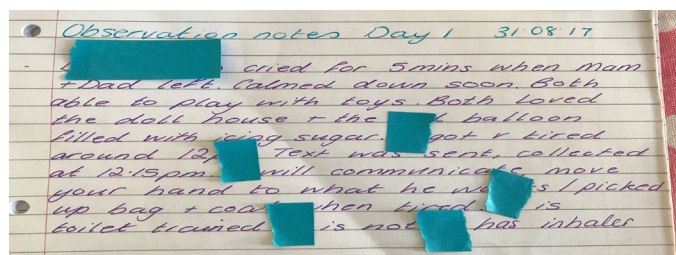 Observation notes Day 1 31.08.17
- cried for 5mins when Mam
+ Dad left. Calmed down soon. Both
able to play with toys. Both loved
the doll house + the balloon
filled with icing sugar. got v tired
around 12p Text was sent, collected
at 12:15pm. will communicate, move
your hand to what he / picked
up bag + coat when tired. is
toilet trained is not has inhaler